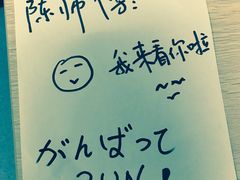 陈师傅:
我来看你啦
~~
がんばって